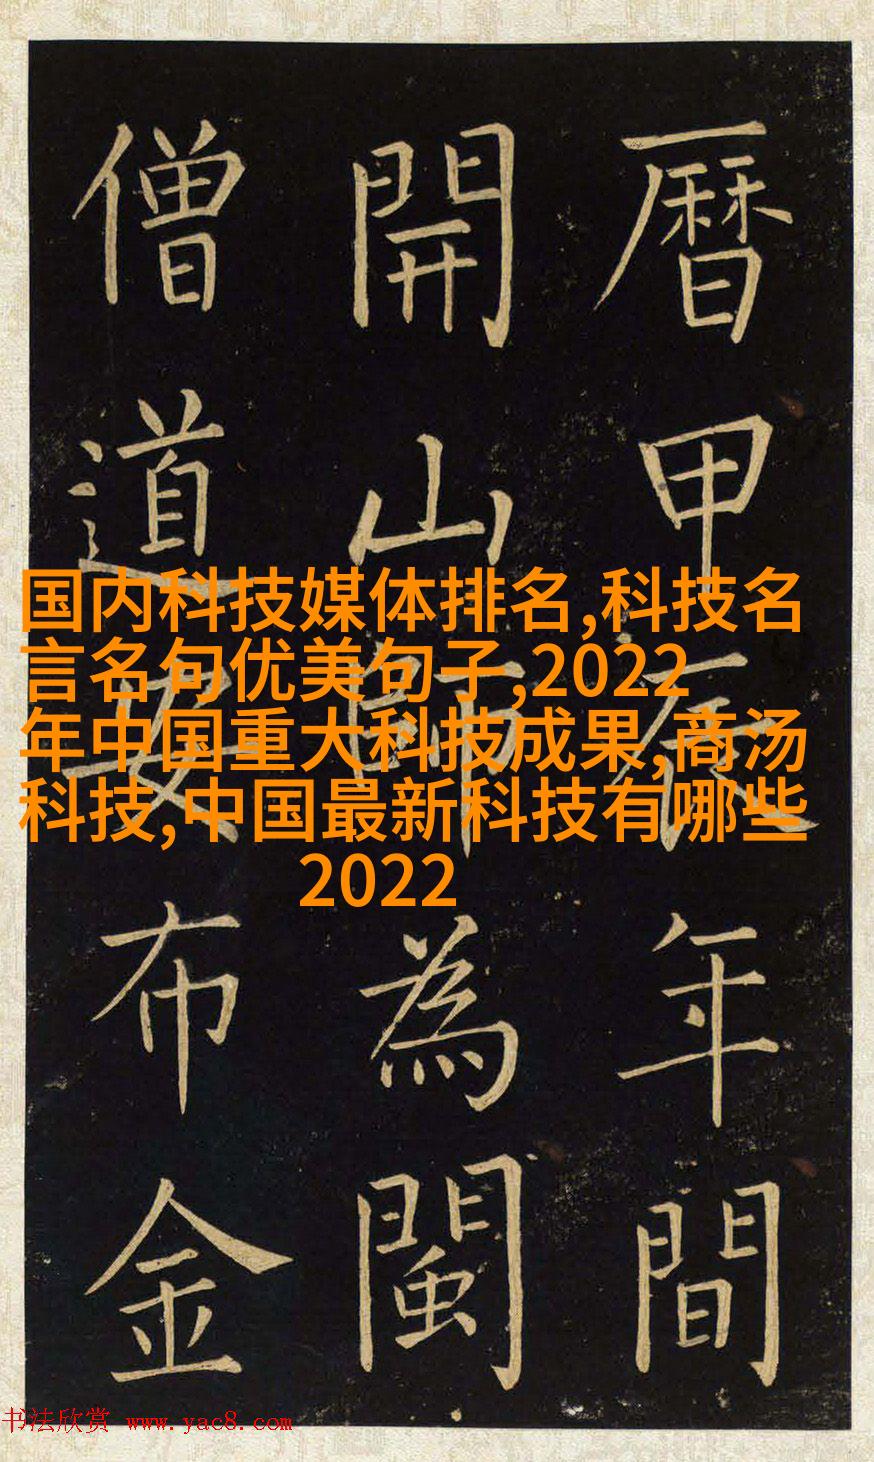 曆甲辰年間
開山師為閩
僧道安布金
国内科技媒体排名,科技名
言名句优美句子,2022
年中国重大科技成果,商汤
科技,中国最新科技有哪些
2022
书法欣赏 www.yac8.com